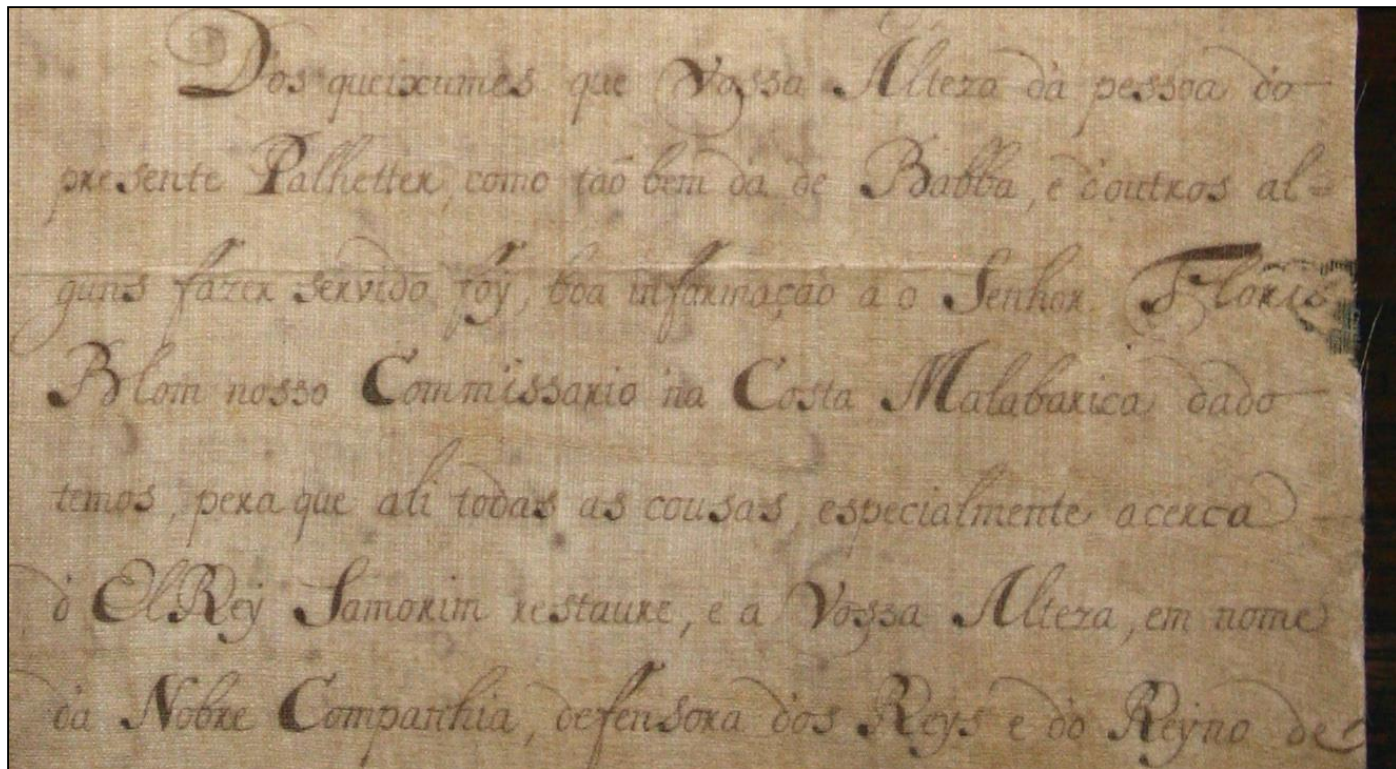 Dos queixumes que Vossa Alteza da pessoa do
presente Palhetter, como tão bem da de Babba, e d'outros al=
guns fazer servido foy, boa informação a o Senhor Floris
Blom nosso Commissario na Costa Malabarica dado
temos, pera que ali todas as cousas, especialmente acerca
d'ElRey Samorim restaure, e a Vossa Alteza, em nome
da Nobre Companhia, defensora dos Reys e do Reyno de